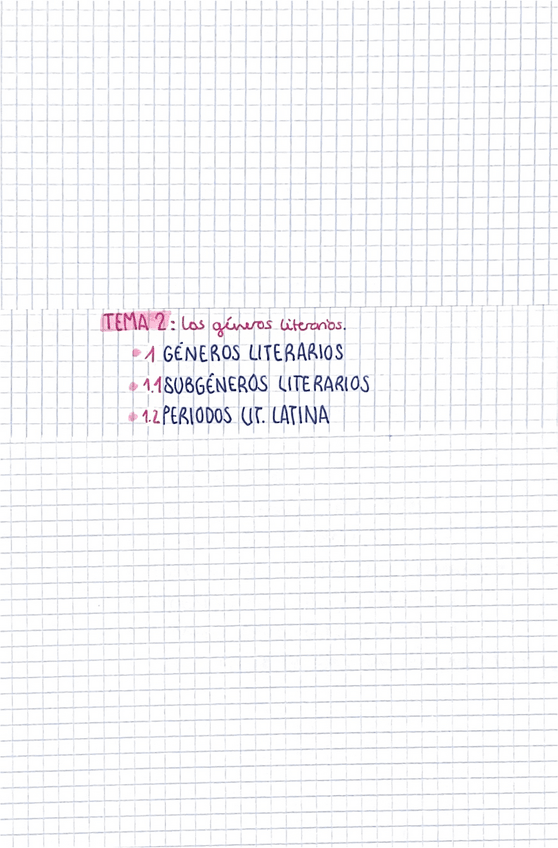 TEMA 2: Los géneros literarios.
• 1 GÉNEROS LITERARIOS
• 1.1 SUBGÉNEROS LITERARIOS
• 1.2 PERIODOS LIT. LATINA